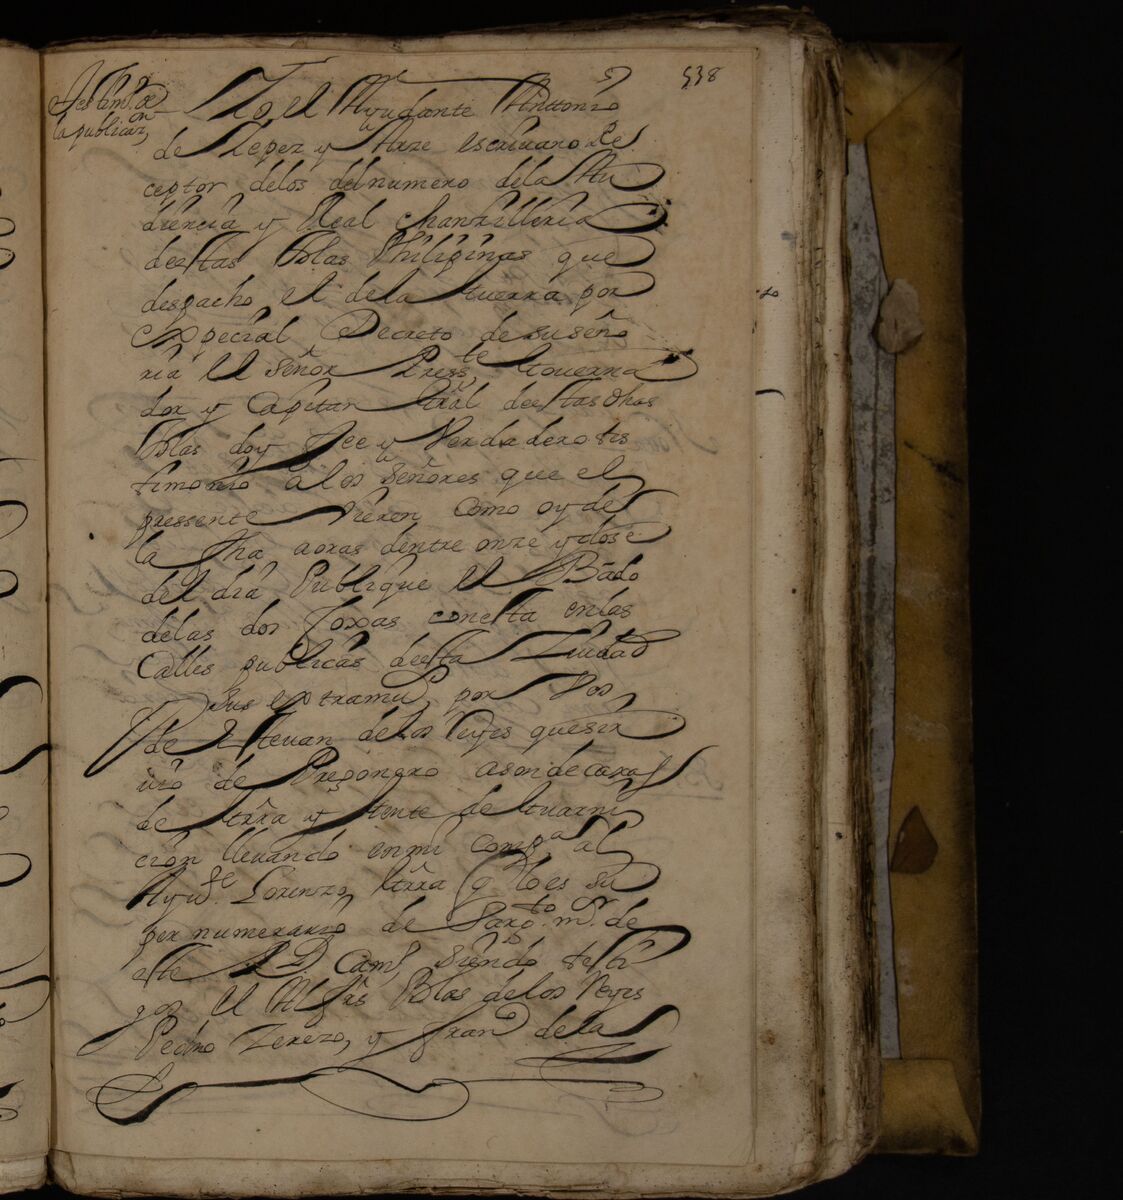 538
Testim.º de
la publicaz.on
Yo, el Ayudante Anttonio
de Lepez y Arze escrivano Re
ceptor delos del numero dela Au
diencia y Real Chanzilleria
destas Yslas Philipinas que
despacho el dela Guerra por
expecial Decreto de su seño
ria El señor Press.te Governa
dor y Capitan Gral destas dhas
Yslas doy fee y Verdadero tes
timonio a los señores que el
pressente Vieren Como oy dia de
la fha aoras dentre onze y dose
del dia Publique el Bãdo
delas dos foxas con esta en las
Calles publicas desta Ziudad
y sus extramu.s por Vos
de Estevan delos Reyes que sir
vio de Pregonero a son de caxas
de Grra y Gente de Guarni
cion llevando en mi comp.a al
Ayud.te Lorenzo Grra (q lo es su
pernumerario de Sarg.to m.or de
este R.l Camp.o siendo testi
gos el Alfrs Blas delos Reyes
Pedro Zerezo, y Fran.co de la